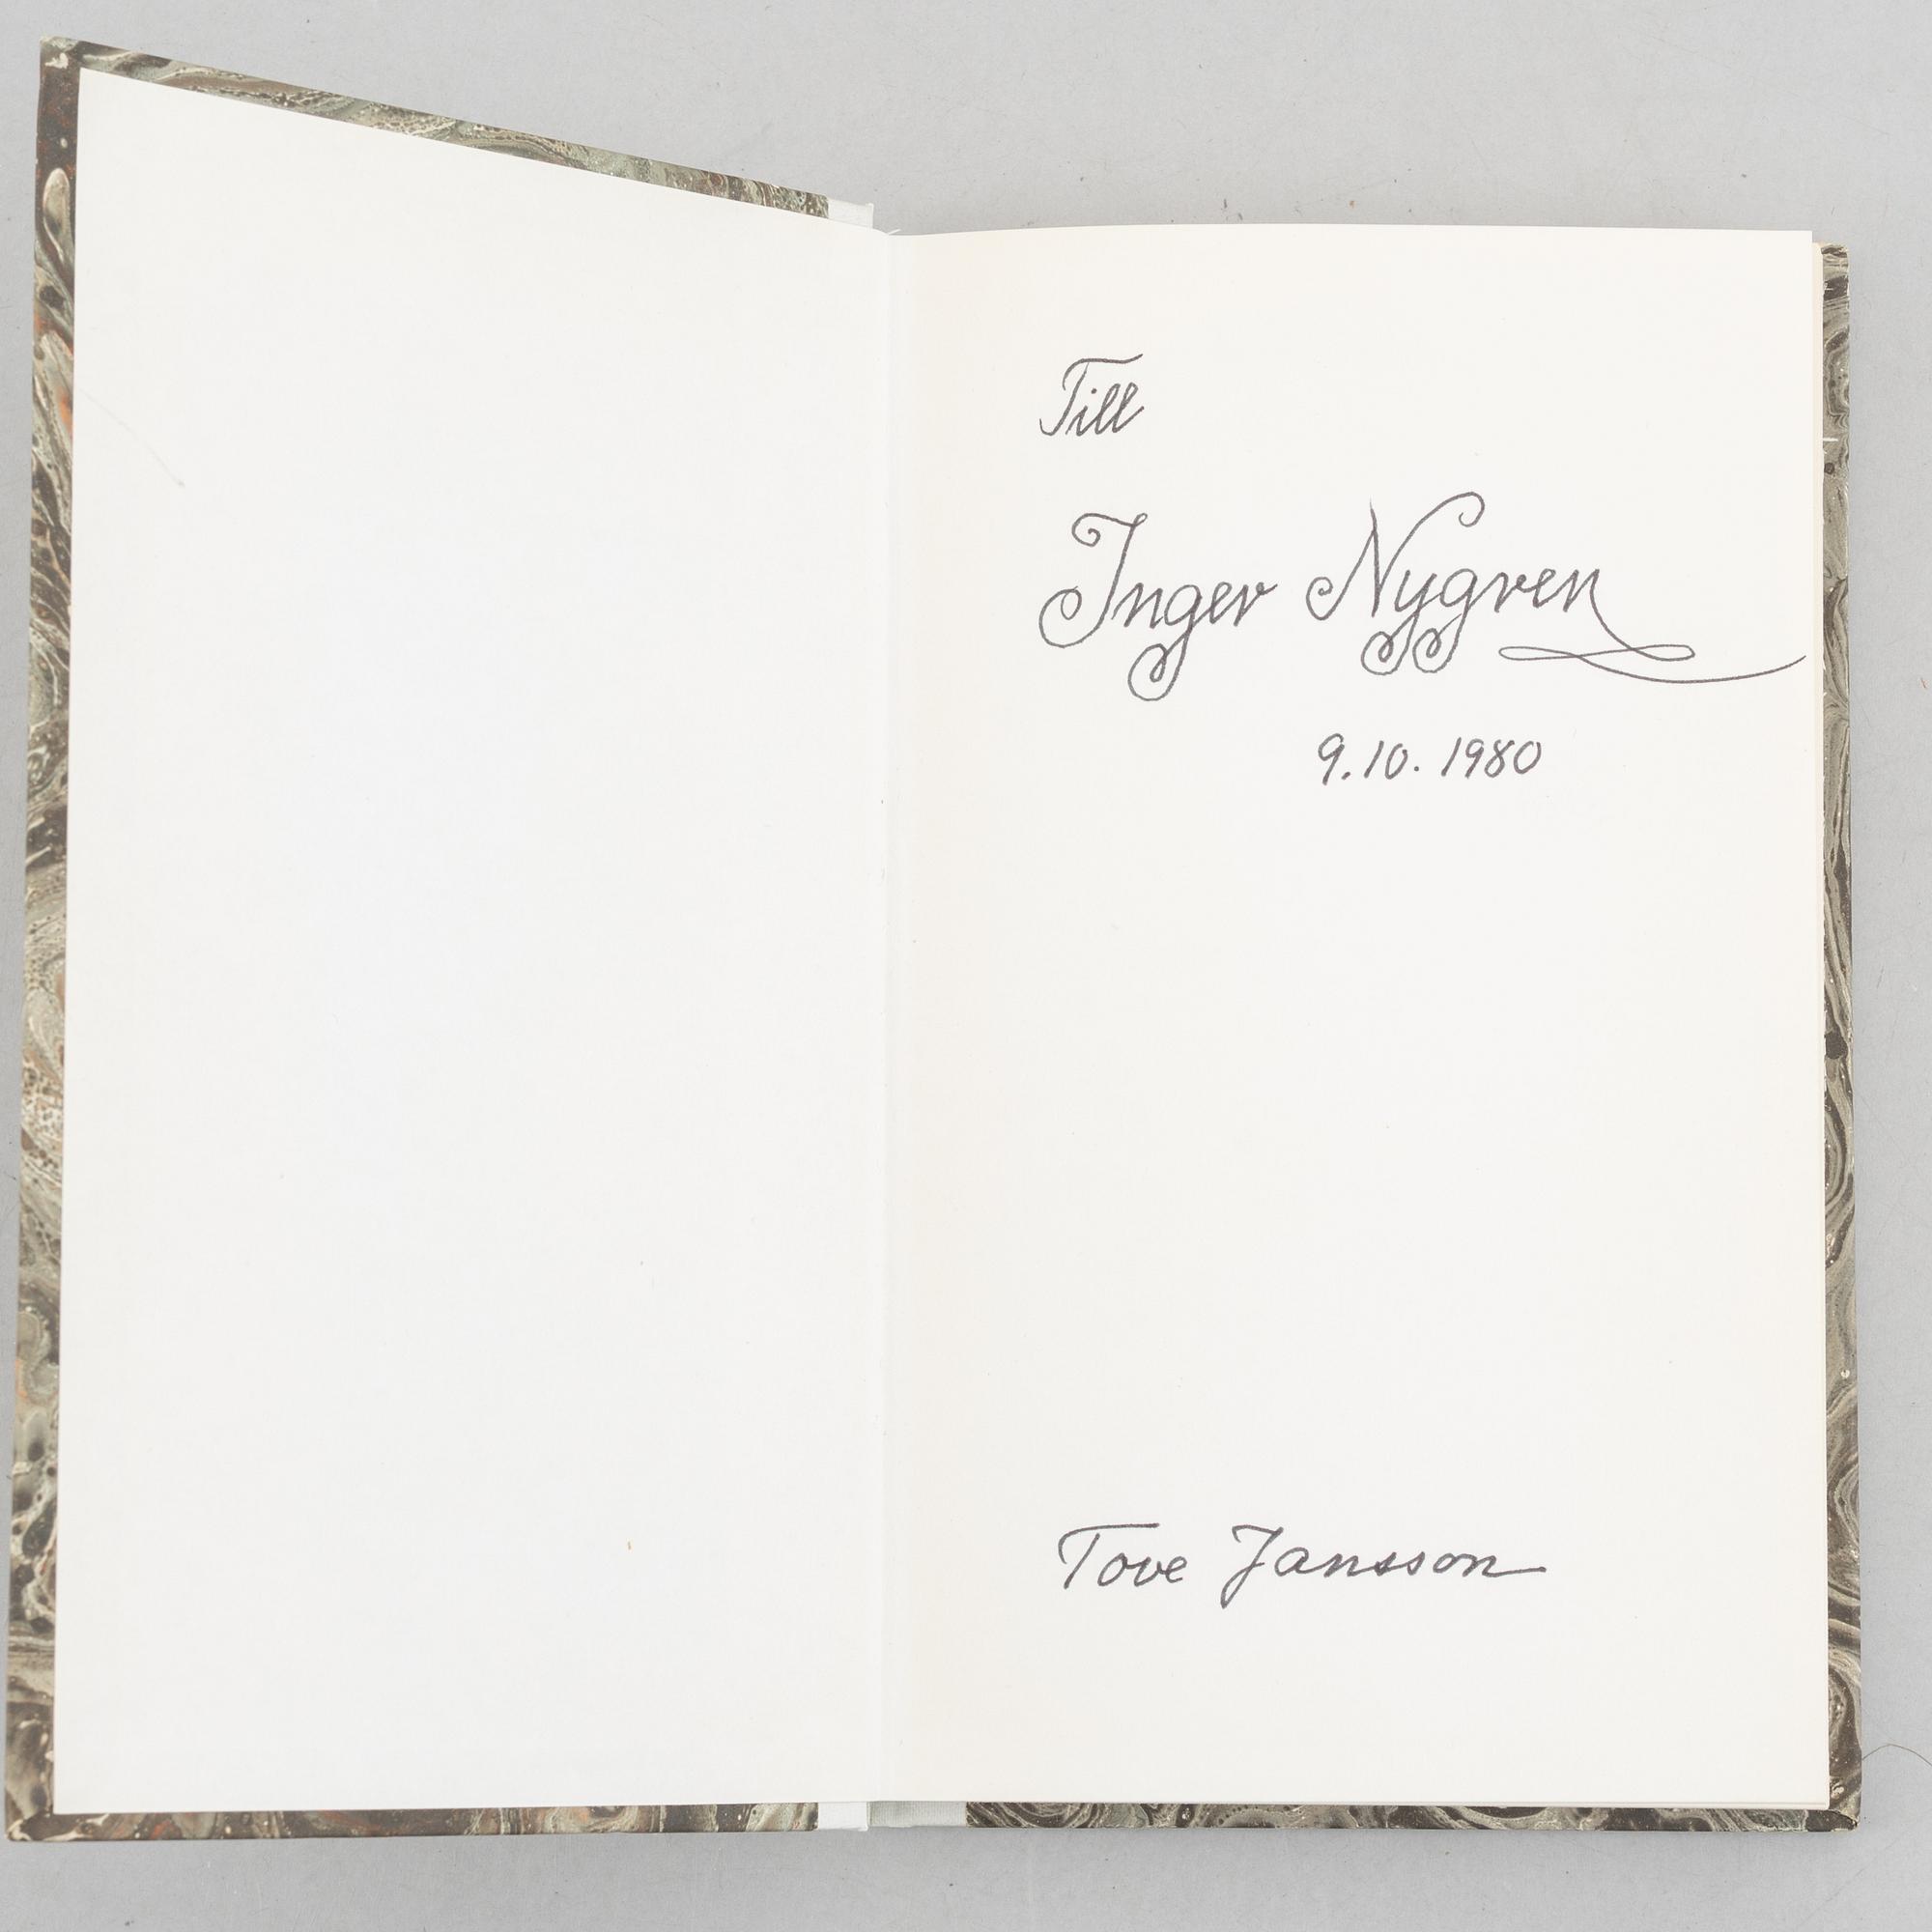 Till
Inger Nygren
9.10.1980
Tove Jansson